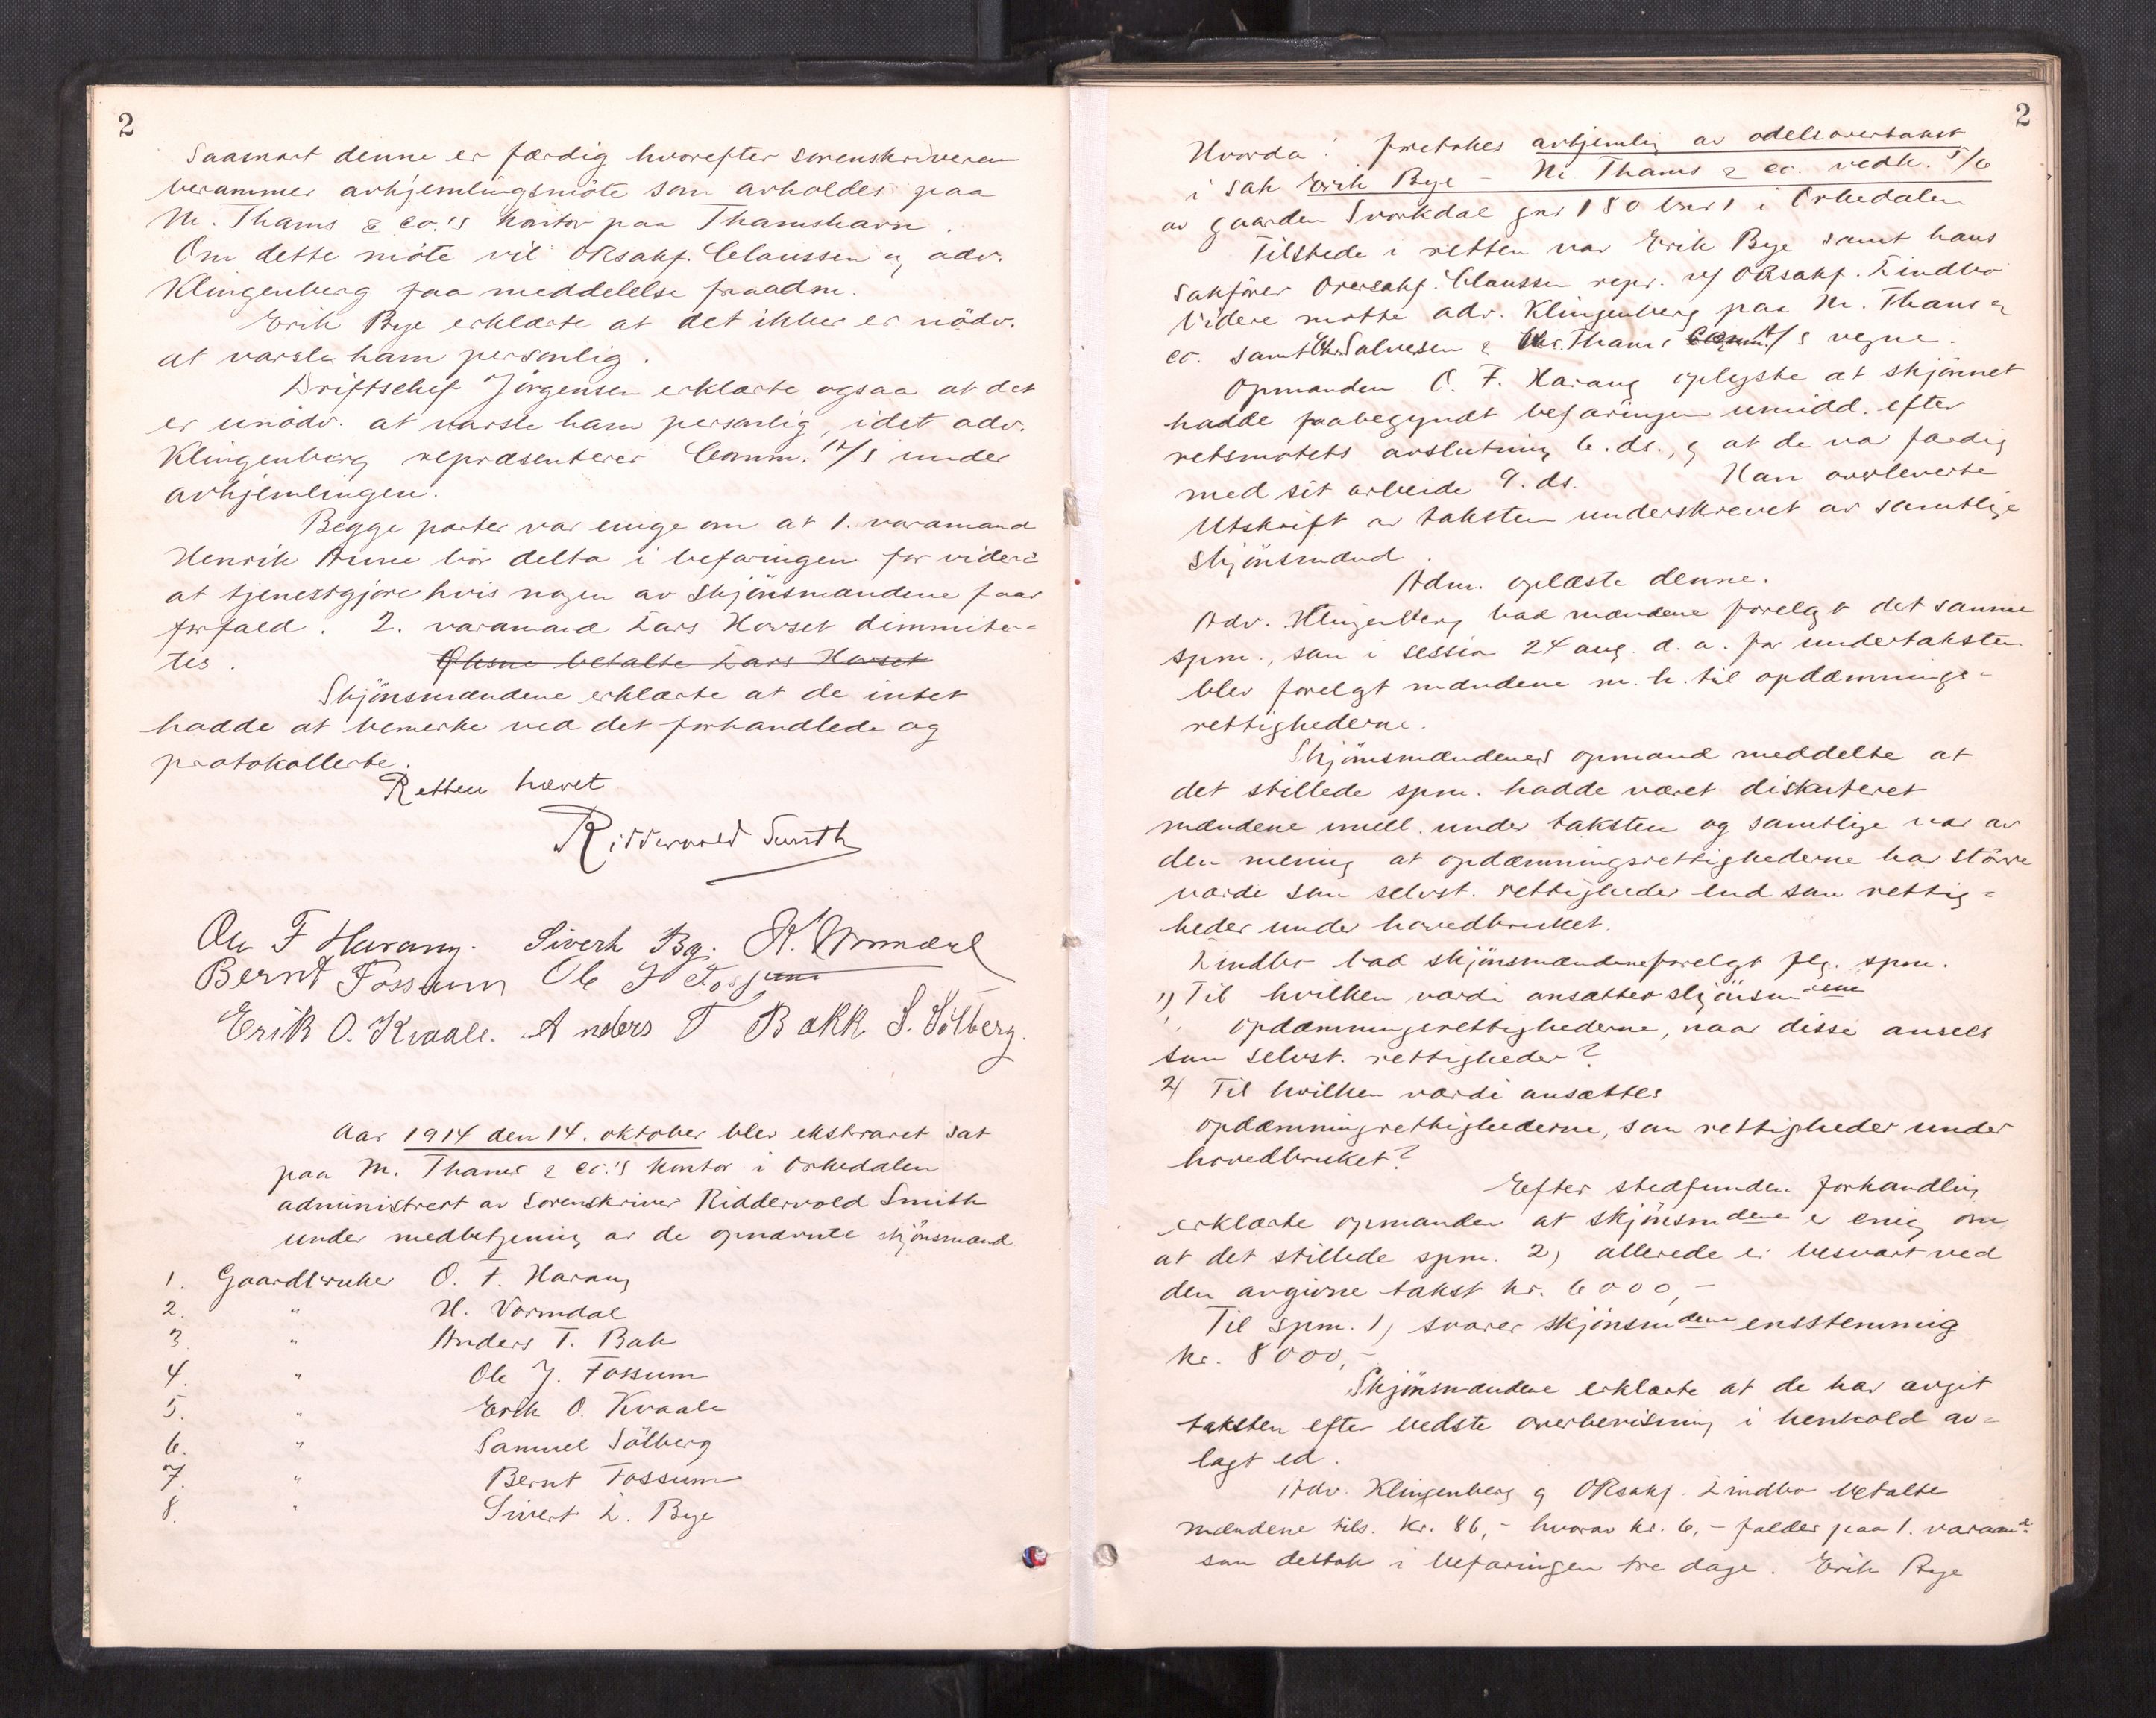 2
Saasnart denne er færdig hvorefter sorenskriveren
berammer avhjemlingsmöte som avholdes paa
M. Thams & co.'s kontor paa Thamshavn.
Om dette möte vil ORsakf. Claussen og adv.
Klingenberg faa meddelelse fra adm.
Erik Bye erklærte at det ikke er nödv.
at varsle ham personlig.
Driftschef Jörgensen erklærte ogsaa at det
er unödv. at varsle ham personlig, idet adv.
Klingenberg repræsenterer Comm. A/S under
avhjemlingen.
Begge parter var enige om at 1. varamand
Henrik Aune bör delta i befaringen for videre
at tjenestgjöre hvis nogen av skjönsmændene faar
forfald. 2. varamand Lars Horset dimmiter-
tes. betalte Lars Horset
Skjönsmændene erklærte at de intet
hadde at bemerke ved det forhandlede og
protokollerte.
Retten hævet
Ridderwold Smith
Ole F Harang. Sivert By. H. Wormdal
Bernt Fossum Ole J Fossum
Erik O. Kvaale. Anders T Bakk S. Sölberg.
Aar 1914 den 14. oktober blev ekstraret sat
paa M. Thams & co.'s kontor i Orkedalen
administrert av Sorenskriver Riddervold Smith
under medbetjening av de opnævnte skjönsmænd
1. Gaardbruker O. F. Harang
2. " H. Vormdal
3. " Anders T. Bak
4. " Ole J. Fossum
5. " Erik O. Kvaale
6. " Samuel Sölberg
7. " Bernt Fossum
8. " Sivert L. Bye
2
Hvorda: foretokes avhjemling av odelsovertakst
i sak Erik Bye - M. Thams & co. vedk. 5/6
av gaarden Svorkdal gnr 180 bnr 1 i Orkedalen
Tilstede i retten var Erik Bye samt hans
sakförer Oversakf. Claussen repr. v/ ORsakf. Lindbo
Videre mötte adv. Klingenberg paa M. Thams &
co. samt Chr. Salvesen & Chr. Thams Comm. A/S vegne.
Opmanden O. F. Harang oplyste at skjönnet
hadde paabegyndt befaringen umidd. efter
retsmötets avslutning 6. ds., og at de var færdig
med sit arbeide 9. ds. Han overleverte
Utskrift av taksten underskrevet av samtlige
skjönsmænd.
Adm. oplæste denne.
Adv. Klingenberg bad mændene forelagt det samme
spm., som i session 24 aug. d. a. for undertaksten
blev forelagt mændene m. h. til opdæmnings-
rettighederne.
Skjönsmændenes opmand meddelte at
det stillede spm. hadde været diskuteret
mændene imell. under taksten og samtlige var av
den mening at opdæmningsrettighederne har större
værdi som selvst. rettigheder end som rettig-
heder under hovedbruket.
Lindbo bad skjönsmændene forelagt flg. spm.
1) Til hvilken værdi ansættes skjönsmdene
opdæmningsrettighederne, naar disse ansees
som selvst. rettigheder?
2) Til hvilken værdi ansættes
opdæmningrettighederne, som rettigheder under
hovedbruket?
Efter stedfunden forhandling
erklærte opmanden at skjönsmdene er enig om
at det stillede spm. 2) allerede er besvart ved
den avgivne takst kr. 6000,-
Til spm. 1) svarer skjönsmdene enstemmig
kr. 8000,-
Skjönsmændene erklærte at de har avgit
taksten efter bedste overbevisning i henhold av-
lagt ed.
Adv. Klingenberg og ORsakf. Lindbo betalte
mændene tils. kr. 86,- hvorav kr. 6,- falder paa 1. varamd.
som deltok i befaringen tre dage. Erik Bye